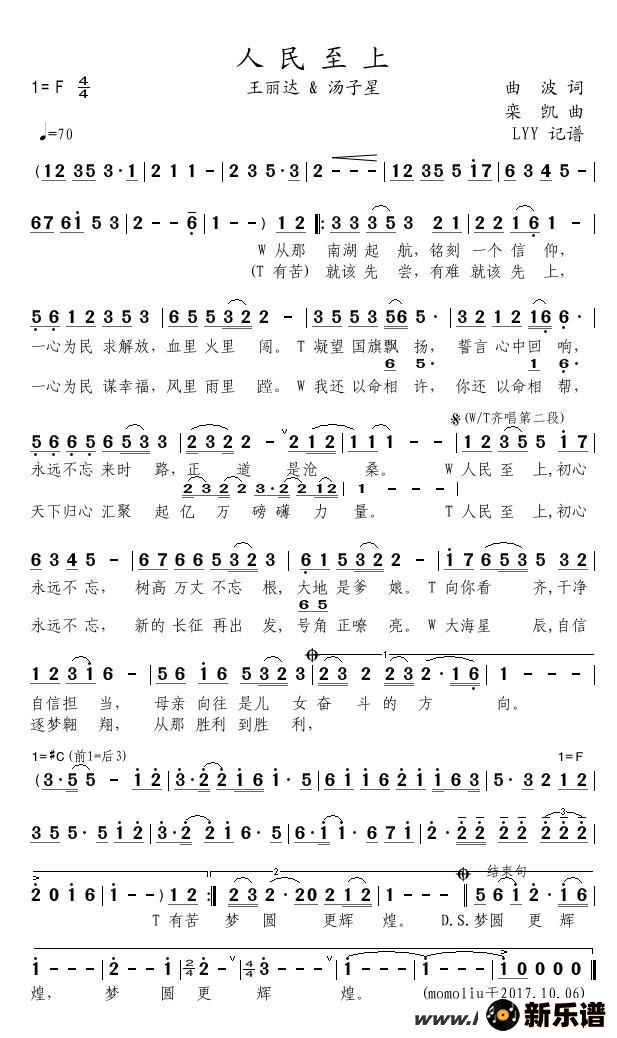 人民至上
1= F 4/4
王丽达 & 汤子星
曲 波 词
栾 凯 曲
♩=70
LYY 记谱
(12 35 3·1 | 2 1 1 - | 2 3 5·3 | 2 - - - | 12 35 5 17 | 6 3 4 5 -
67 61 5 3 | 2 - - 6 | 1 - - ) 1 2 ‖: 3 3 3 5 3 2 1 | 2 2 1 6 1 - |
W从那 南湖起 航,铭刻 一个信 仰,
(T有苦) 就该先 尝,有难 就该先 上,
5 6 1 2 3 5 3 | 6 5 5 3 2 2 - | 3 5 5 3 5 6 5· | 3 2 2 1 6 6· |
一心为民 求解放,血里 火里 闯。T 凝望 国旗飘 扬, 誓言 心中回 响,
6 5· 1 6·
一心为民 谋幸福,风里 雨里 蹚。W 我还 以命相 许, 你还 以命相 帮,
𝄋(W/T齐唱第二段)
5 6 6 5 6 5 3 3 | 2 3 2 2 - ∨ 2 1 2 | 1 1 1 - - | 1 2 3 5 5 1 7 |
永远不忘 来时 路,正 道 是沧 桑。 W 人民 至 上,初心
2 3 2 2 3·2 2 12 | 1 - - -
天下归心 汇聚 起亿 万 磅礴 力 量。 T 人民 至 上,初心
6 3 4 5 - | 6 7 6 6 5 3 2 3 | 6 1 5 3 2 2 - | 1 7 6 5 3 5 3 2 |
永远不 忘, 树高 万丈 不忘 根,大地 是爹 娘。T 向你看 齐,干净
6 5
永远不 忘, 新的 长征 再出 发,号角 正嘹 亮。W 大海星 辰,自信
1 2 3 1 6 - | 5 5 6 1 6 5 3 2 3 | 2 3 2 3 2·1 6 | 1 - - - |
自信担 当, 母亲 向往 是儿 女奋 斗的 方 向。
逐梦翱 翔, 从那 胜利 到胜 利,
1=♯C (前1=后3)
1=F
(3·5 5 - 1 2 | 3·2 2 1 6 1· 5 | 6 1 1 6 2 1 1 6 3 | 5· 3 2 1 2 |
3 5 5· 5 1 2 | 3·2 2 1 2· 5 | 6 1 1· 6 7 1 | 2· 2 2 2 2 2 2 2 |
结束句
2 0 1 6 | 1 - - ) 1 2 :‖ 2 3 2·20 2 1 2 | 1 - - - ‖ 5 6 1 2· 1 6 |
T 有苦 梦 圆 更辉 煌。 D.S.梦圆 更 辉
1 - - - | 2 - - 1 | 2/4 2 - ∨ | 4/4 3· 1 - | 1 - - - | 1 0 0 0 0 ‖
煌, 梦 圆 更 辉 煌。 (momoliu于2017.10.06)
新乐谱